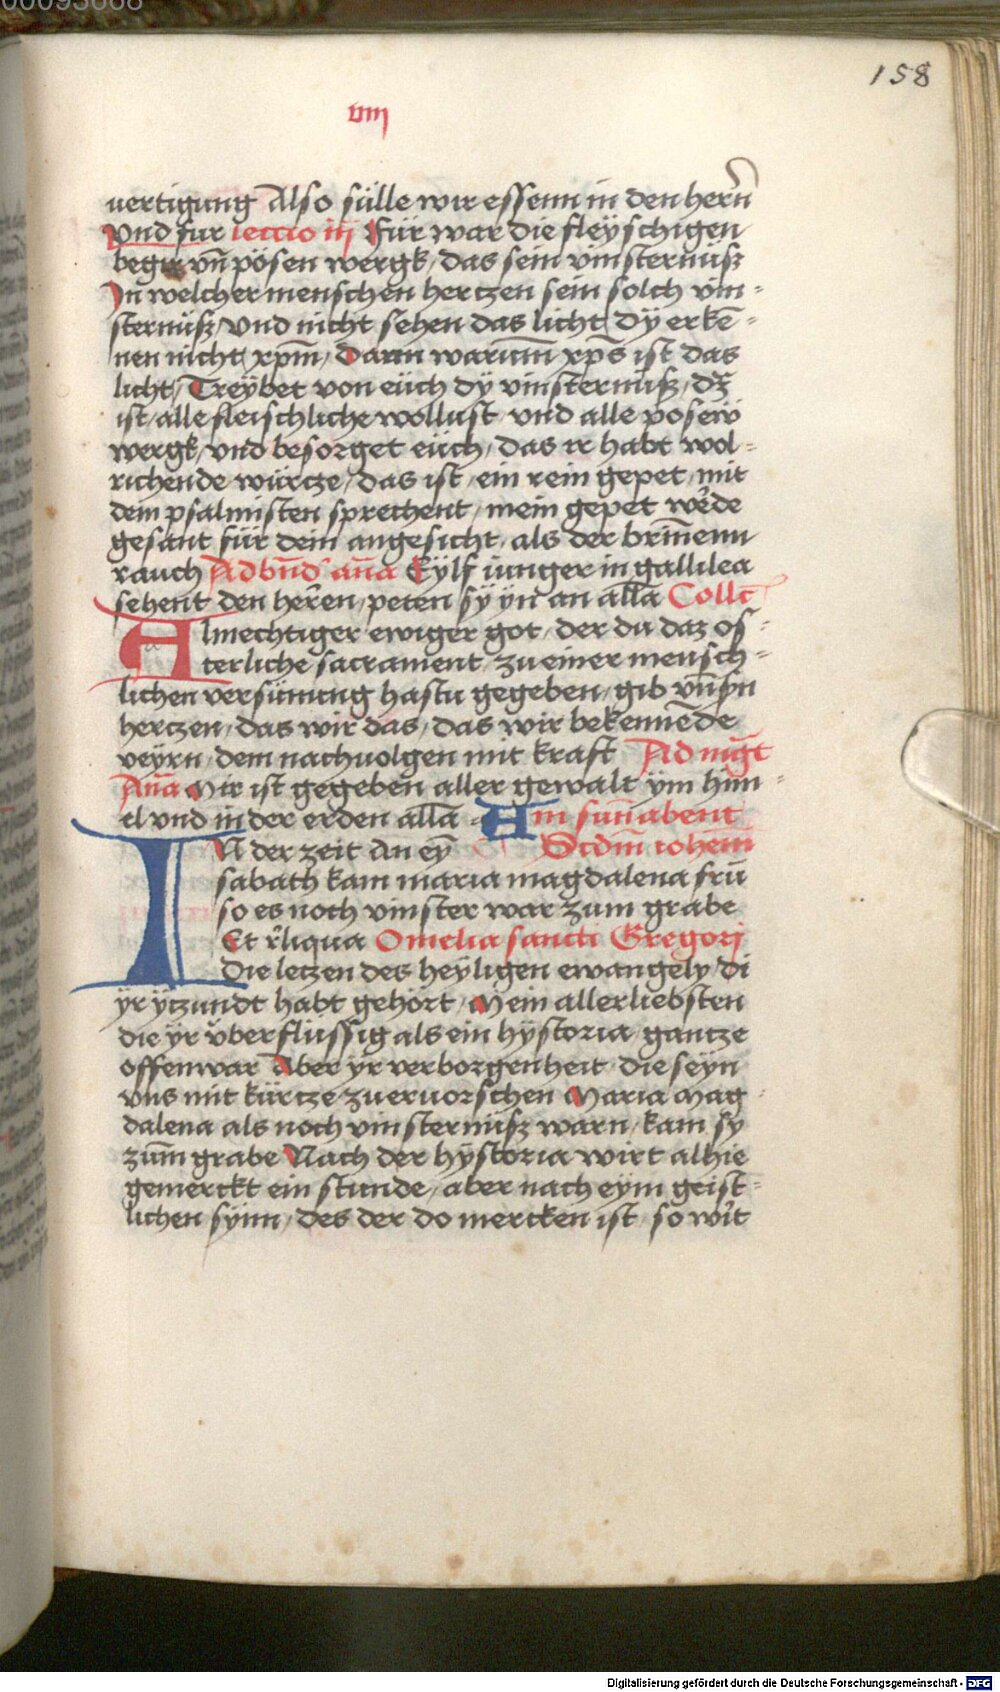 158
viiij
uertigung Also sülle wir essenn in den her̄n
vnd fur leccio iij Für war die fleyschigen
begir vn̄ pösen wergk, das sein vinsternüsz
In welcher menschen hertzen sein solch vin-
sternüsz, vnd nicht sehen das licht, dÿ erkē-
nen nicht xpm̄, Darin warum̄ xp̄s ist das
licht, Treÿbet von eüch dÿ vinsternüsz, dz̄
ist, alle fleischliche wollust, vnd alle poseẅ
wergk, vnd besorget eüch, das ir habt wol-
richende würcze, das ist, ein rein gepet, mit
dem psalmisten sprechent, mein gepet wēde
gesant für dein angesicht, als der brin̄enn
rauch Ad bn̄d' an̄a Eÿlf iunger in gallilea
sehent den herren, peten sÿ ÿn an all̄a Collc̄
Almechtiger ewiger got, der du daz os-
terliche sacrament, zu einer mensch-
lichen versünung hastu gegeben, gib vn̄sn̄
hertzen, das wir das, das wir bekennēde
veyrn, dem nachuolgen mit kraft Ad mg̅t
An̄a Mir ist gegeben aller gewalt ÿm him-
el vnd in der erden all̄a Am sun̄abent
IN der zeit An eÿ Scd̄m ioheīn
sabath kam maria magdalena frü
so es noch vinster war zum grabe
Et r̄liqua Omelia sancti Gregorj
Die letzen des heÿligen ewangely, di
ÿr ÿtzundt habt gehört, Mein allerliebsten
die ÿr überflüssig als ein hÿstoria, gantze
offenwar Aber ÿr verborgenheit, die seÿn
vns mit kürcze zu eruorschen Maria mag
dalena als noch vinsternüsz warn, kam sy
zum̄ grabe Nach der hÿstoria wirt alhie
gemerckt ein stunde, aber nach eÿm geist-
lichen sÿnn, des der do mercken ist, so wirt
Digitalisierung gefördert durch die Deutsche Forschungsgemeinschaft - DFG